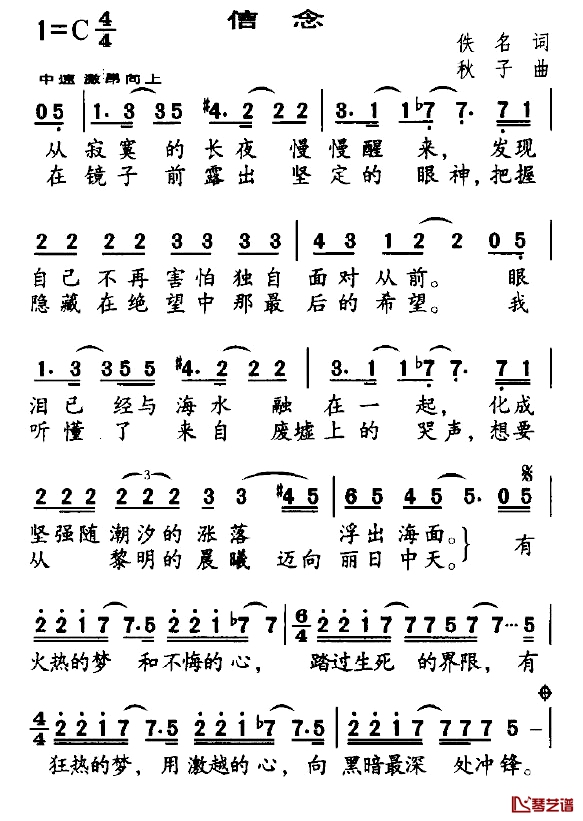 信念
1=C 4/4
佚名 词
秋子 曲
中速 激昂向上
0 5 | 1. 3 3 5 #4. 2 2 2 | 3. 1 1 b7 7. 7 1
从寂寞的长夜 慢慢醒来，发现
在镜子前露出 坚定的眼神，把握
2 2 2 2 3 3 3 3 | 4 3 1 2 2 0 5
自己不再害怕独自 面对从前。 眼
隐藏在绝望中那最后的希望。 我
1. 3 3 5 5 #4. 2 2 2 | 3. 1 1 b7 7. 7 1
泪已经与海水 融在一起，化成
听懂了 来自 废墟上的哭声，想要
2 2 2 2 2 2 3 3 #4 5 | 6 5 4 5 5. 0 5
坚强随潮汐的涨落 浮出海面。 有
从 黎明的晨曦 迈向丽日中天。
2 2 1 7 7. 5 2 2 1 b7 7 | 6/4 2 2 1 7 7 5 7 7 ··· 5
火热的梦 和不悔的心， 踏过生死 的界限，有
4/4 2 2 1 7 7. 5 b7 7. 5 | 2 2 1 7 7 7 5 － |
狂热的梦，用激越的心，向黑暗最深 处冲锋。
琴艺谱